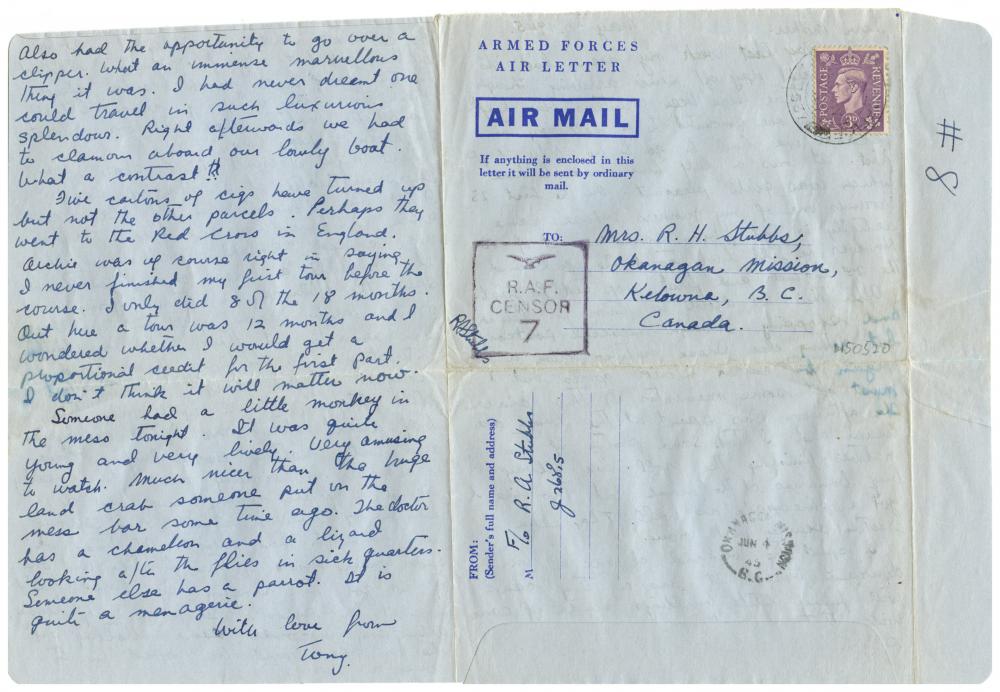 Also had the opportunity to go over a
clipper. What an immense marvellous
thing it was. I had never dreamt one
could travel in such luxurious
splendour. Right afterwards we had
to clamour aboard our lowly boat.
What a contrast!!
Five cartons of cigs have turned up
but not the other parcels. Perhaps they
went to the Red Cross in England.
Archie was of course right in saying
I never finished my first tour before the
course. I only did 8 of the 18 months.
Out here a tour was 12 months and I
wondered whether I would get a
proportional credit for the first part.
I don't think it will matter now.
Someone had a little monkey in
the mess tonight. It was quite
young and very lively. Very amusing
to watch. Much nicer than the huge
land crab someone put on the
mess bar some time ago. The doctor
has a chameleon and a lizard
looking after the flies in sick quarters.
Someone else has a parrot. It is
quite a menagerie.
With love from
Tony.
ARMED FORCES
AIR LETTER
AIR MAIL
If anything is enclosed in this
letter it will be sent by ordinary
mail.
POSTAGE REVENUE
3D
TO: Mrs. R. H. Stubbs,
Okanagan Mission,
Kelowna, B. C.
Canada.
R.A.F.
CENSOR
7
RAStubbs
1150520
FROM:
(Sender's full name and address)
F/O R. A. Stubbs
J26815
M
OKANAGAN MISSION
JUN 4
45
B.C.
#
8